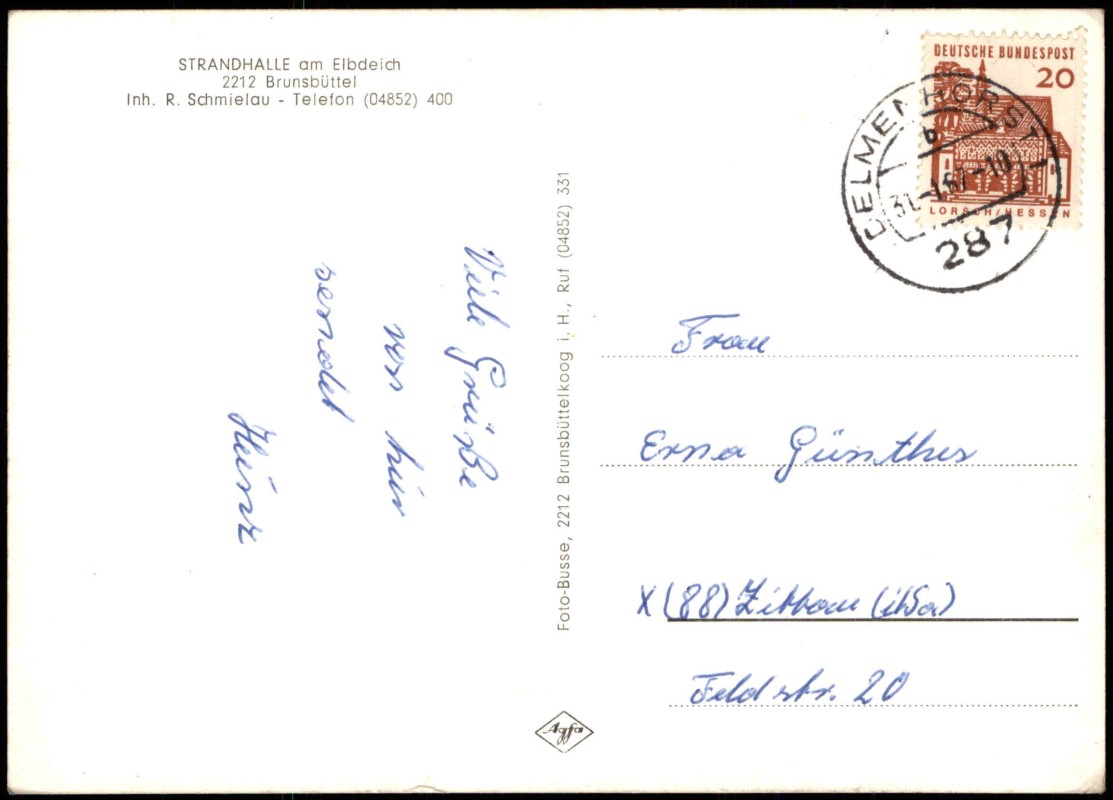 STRANDHALLE am Elbdeich
2212 Brunsbüttel
Inh. R. Schmielau - Telefon (04852) 400
Viele Grüße
von hier
sendet
Heinz
Foto-Busse, 2212 Brunsbüttelkoog i. H., Ruf (04852) 331
Agfa
DEUTSCHE BUNDESPOST
20
LORSCH/HESSEN
DELMENHORST 1
b
31.-1.67-10
287
Frau
Erna Günther
X (88) Zittau (i/Sa)
Feldstr. 20